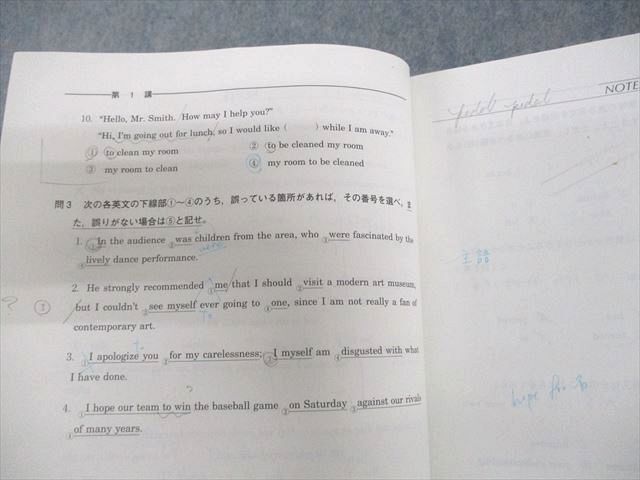 第 1 講
10. "Hello, Mr. Smith. How may I help you?"
"Hi, I'm going out for lunch, so I would like ( ) while I am away."
① to clean my room ② to be cleaned my room
③ my room to clean ④ my room to be cleaned
問3 次の各英文の下線部①〜④のうち,誤っている箇所があれば,その番号を選べ。ま
た,誤りがない場合は⑤と記せ。
1. ①In the audience ②was children from the area, who ③were fascinated by the
were
④lively dance performance.
2. He strongly recommended ①me that I should ②visit a modern art museum,
? ① but I couldn't ③see myself ever going to ④one, since I am not really a fan of
to
contemporary art.
to
3. ①I apologize you ②for my carelessness; ③I myself am ④disgusted with what
I have done.
?
4. ①I hope our team to win the baseball game ②on Saturday ③against our rivals
④of many years.
NOTE
pedal
主語
hope